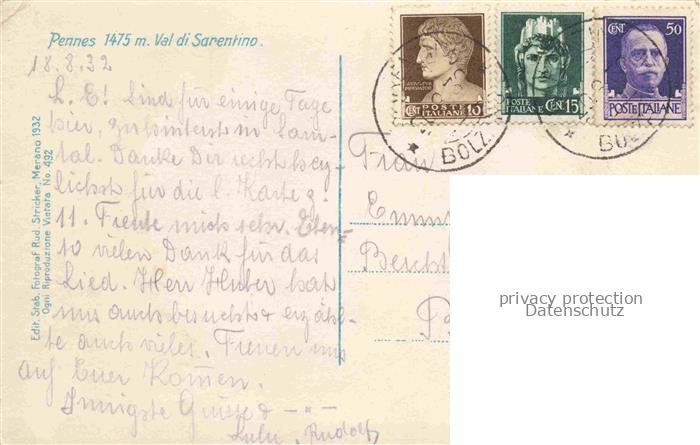 Pennes 1475 m. Val di Sarentino.
18.8.32
L. E! Sind für einige Tage
hier, zuhinterst im Sarn-
tal. Danke Dir recht herz-
lichst für die l. Karte z.
11. Freute mich sehr. Eben-
so vielen Dank für das
Lied. Herr Huber hat
uns auch besucht & erzähl-
te auch vieles. Freuen uns
auf Euer Kommen.
Innigste Grüsse &
Lulu, Rudolf
Edit. Stab. Fotograf Rud. Stricker, Merano 1932
Ogni Riproduzione Vietata No. 492
CENT. POSTE ITALIANE 10
POSTE ITALIANE CEN. 15
CENT. 50
POSTE ITALIANE
BOLZ
Frau
privacy protection
Datenschutz